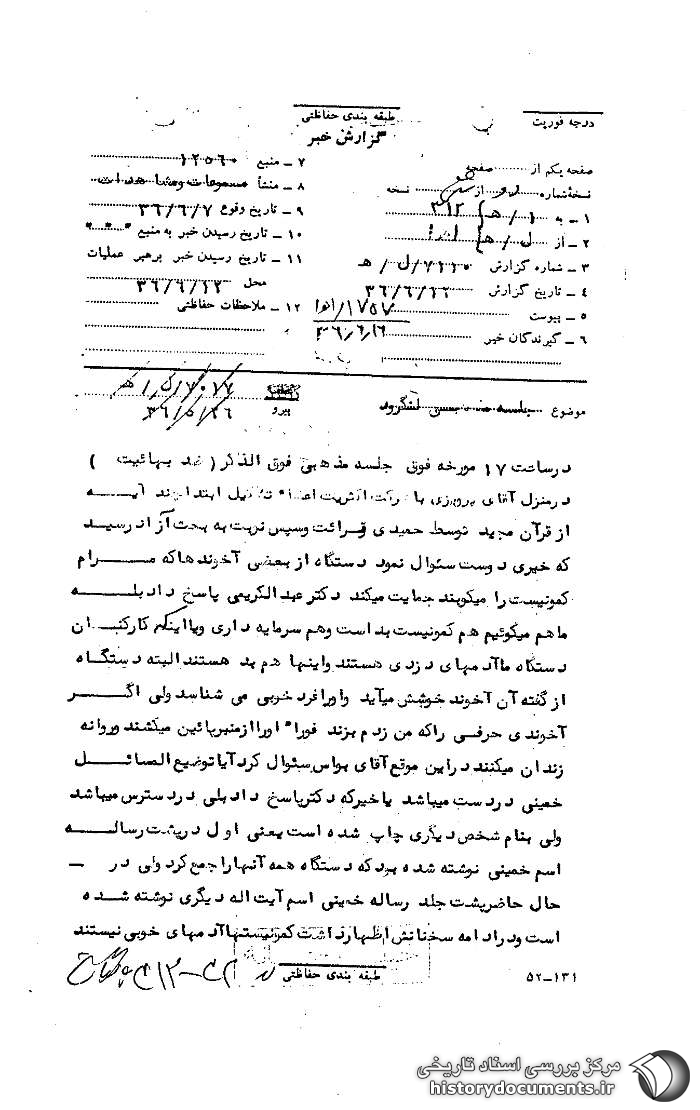 طبقه بندی حفاظتی
درجه فوریت
گزارش خبر
صفحه یکم از صفحه
نسخه شماره از نسخه
۱ ـ به ۱/هـ ۳۱۲
۲ ـ از ل/هـ
۳ ـ شماره گزارش ۷۲۲۰/ل/هـ
۴ ـ تاریخ گزارش ۳۶/۶/۱۲
۵ ـ پیوست
۶ ـ گیرندگان خبر
۷ ـ منبع ۱۲۵۶۰
۸ ـ منشأ مسموعات ومشاهدات
۹ ـ تاریخ وقوع ۳۶/۶/۷
۱۰ ـ تاریخ رسیدن خبر به منبع
۱۱ ـ تاریخ رسیدن خبر برهبر عملیات
محل ۳۶/۶/۱۲
۱۲ ـ ملاحظات حفاظتی
۱۷۵۷
۳۶/۶/۱۶
موضوع جلسه مذهبی لنگرود
پیرو ۷۰۱۷/ل/هـ
۳۶/۵/۲۶
درساعت ۱۷ مورخه فوق جلسه مذهبی فوق الذکر ( ضد بهائیت )
درمنزل آقای پرویزی با شرکت اکثریت اعضاء تشکیل ابتدا چند آیه
از قرآن مجید توسط حمیدی قرائت وسپس نوبت به بحث آزاد رسید
که خیری دوست سئوال نمود دستگاه از بعضی آخوندهاکه مرام
کمونیست را میکوبند حمایت میکند دکتر عبدالکریمی پاسخ داد بله
ماهم میگوئیم هم کمونیست بد است وهم سرمایه داری ویااینکه کارکنان
دستگاه ماآدمهای دزدی هستند واینها هم بد هستند البته دستگاه
از گفته آن آخوند خوشش میآید واورافرد خوبی می شناسد ولی اگر
آخوندی حرفی راکه من زدم بزند فوراً اورا ازمنبرپائین میکشند وروانه
زندان میکنند دراین موقع آقای بواس سئوال کرد آیا توضیح المسائل
خمینی دردست میباشد یاخیرکه دکترپاسخ داد بلی دردسترس میباشد
ولی بنام شخص دیگری چاپ شده است یعنی اول درپشت رساله
اسم خمینی نوشته شده بود که دستگاه همه آنهارا جمع کرد ولی در ـ
حال حاضرپشت جلد رساله خمینی اسم آیت اله دیگری نوشته شده
است ودرادامه سخنانش اظهارداشت کمونیستهاآدمهای خوبی نیستند
طبقه بندی حفاظتی
۵۲ـ۱۳۱
مرکز بررسی اسناد تاریخی
historydocuments.ir